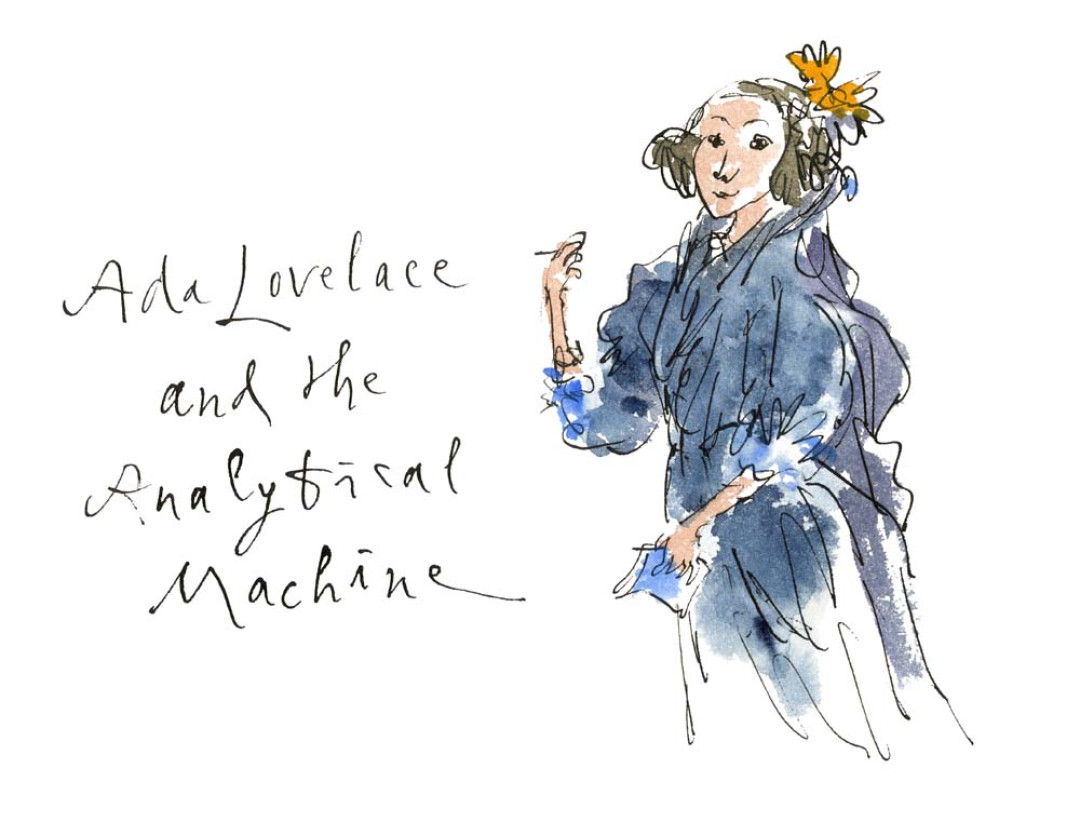 Ada Lovelace
and the
Analytical
Machine